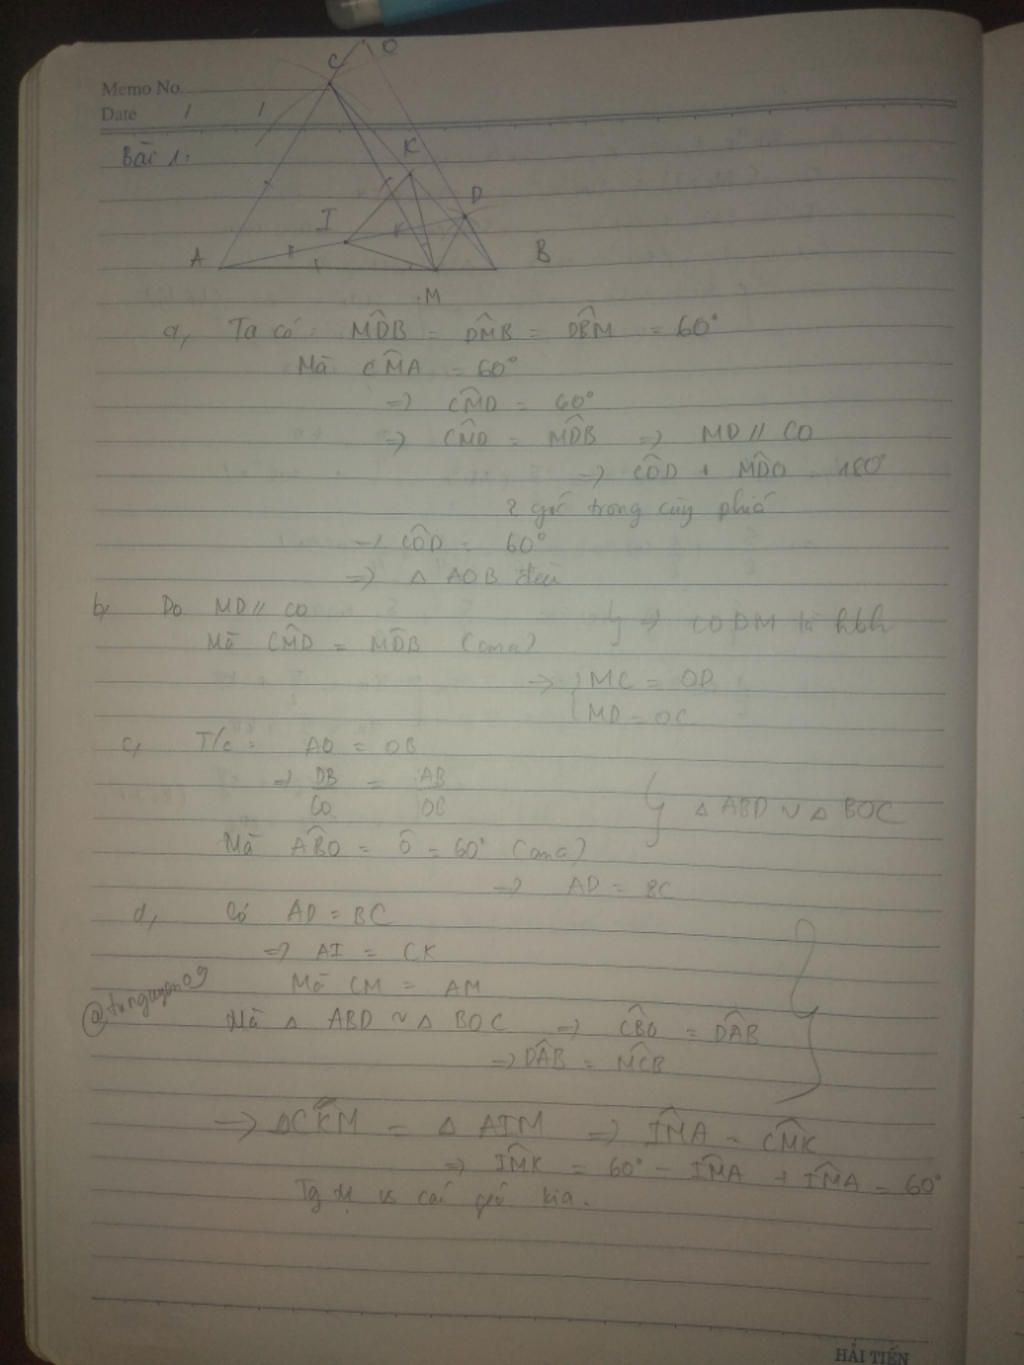 C O
Memo No.
Date / /
Bài 1:
K
D
I
A B
M
a, Ta có: MDB = DMB = DBM = 60°
Mà CMA = 60°
=> CMD = 60°
=> CMD = MDB => MD // CO
=> COD + MDO = 180°
2 góc trong cùng phía
=> COD = 60°
=> △ AOB đều
b, Do MD // CO
Mà CMD = MDB (cmt) } => CODM là hbh
=> { MC = OD
MD = OC
c, T/c: AO = OB
=> DB/CO = AB/OB
Mà ABO = O = 60° (cmt) } △ ABD ∽ △ BOC
=> AD = BC
d, Có AD = BC
=> AI = CK
Mà CM = AM
@tunguyen09
Mà △ ABD ∽ △ BOC => CBO = DAB
=> DAB = MCB
=> △CKM = △ AIM => IMA = CMK
=> IMK = 60° - IMA + IMA = 60°
Tg tự vs các góc kia.
HẢI TIẾN